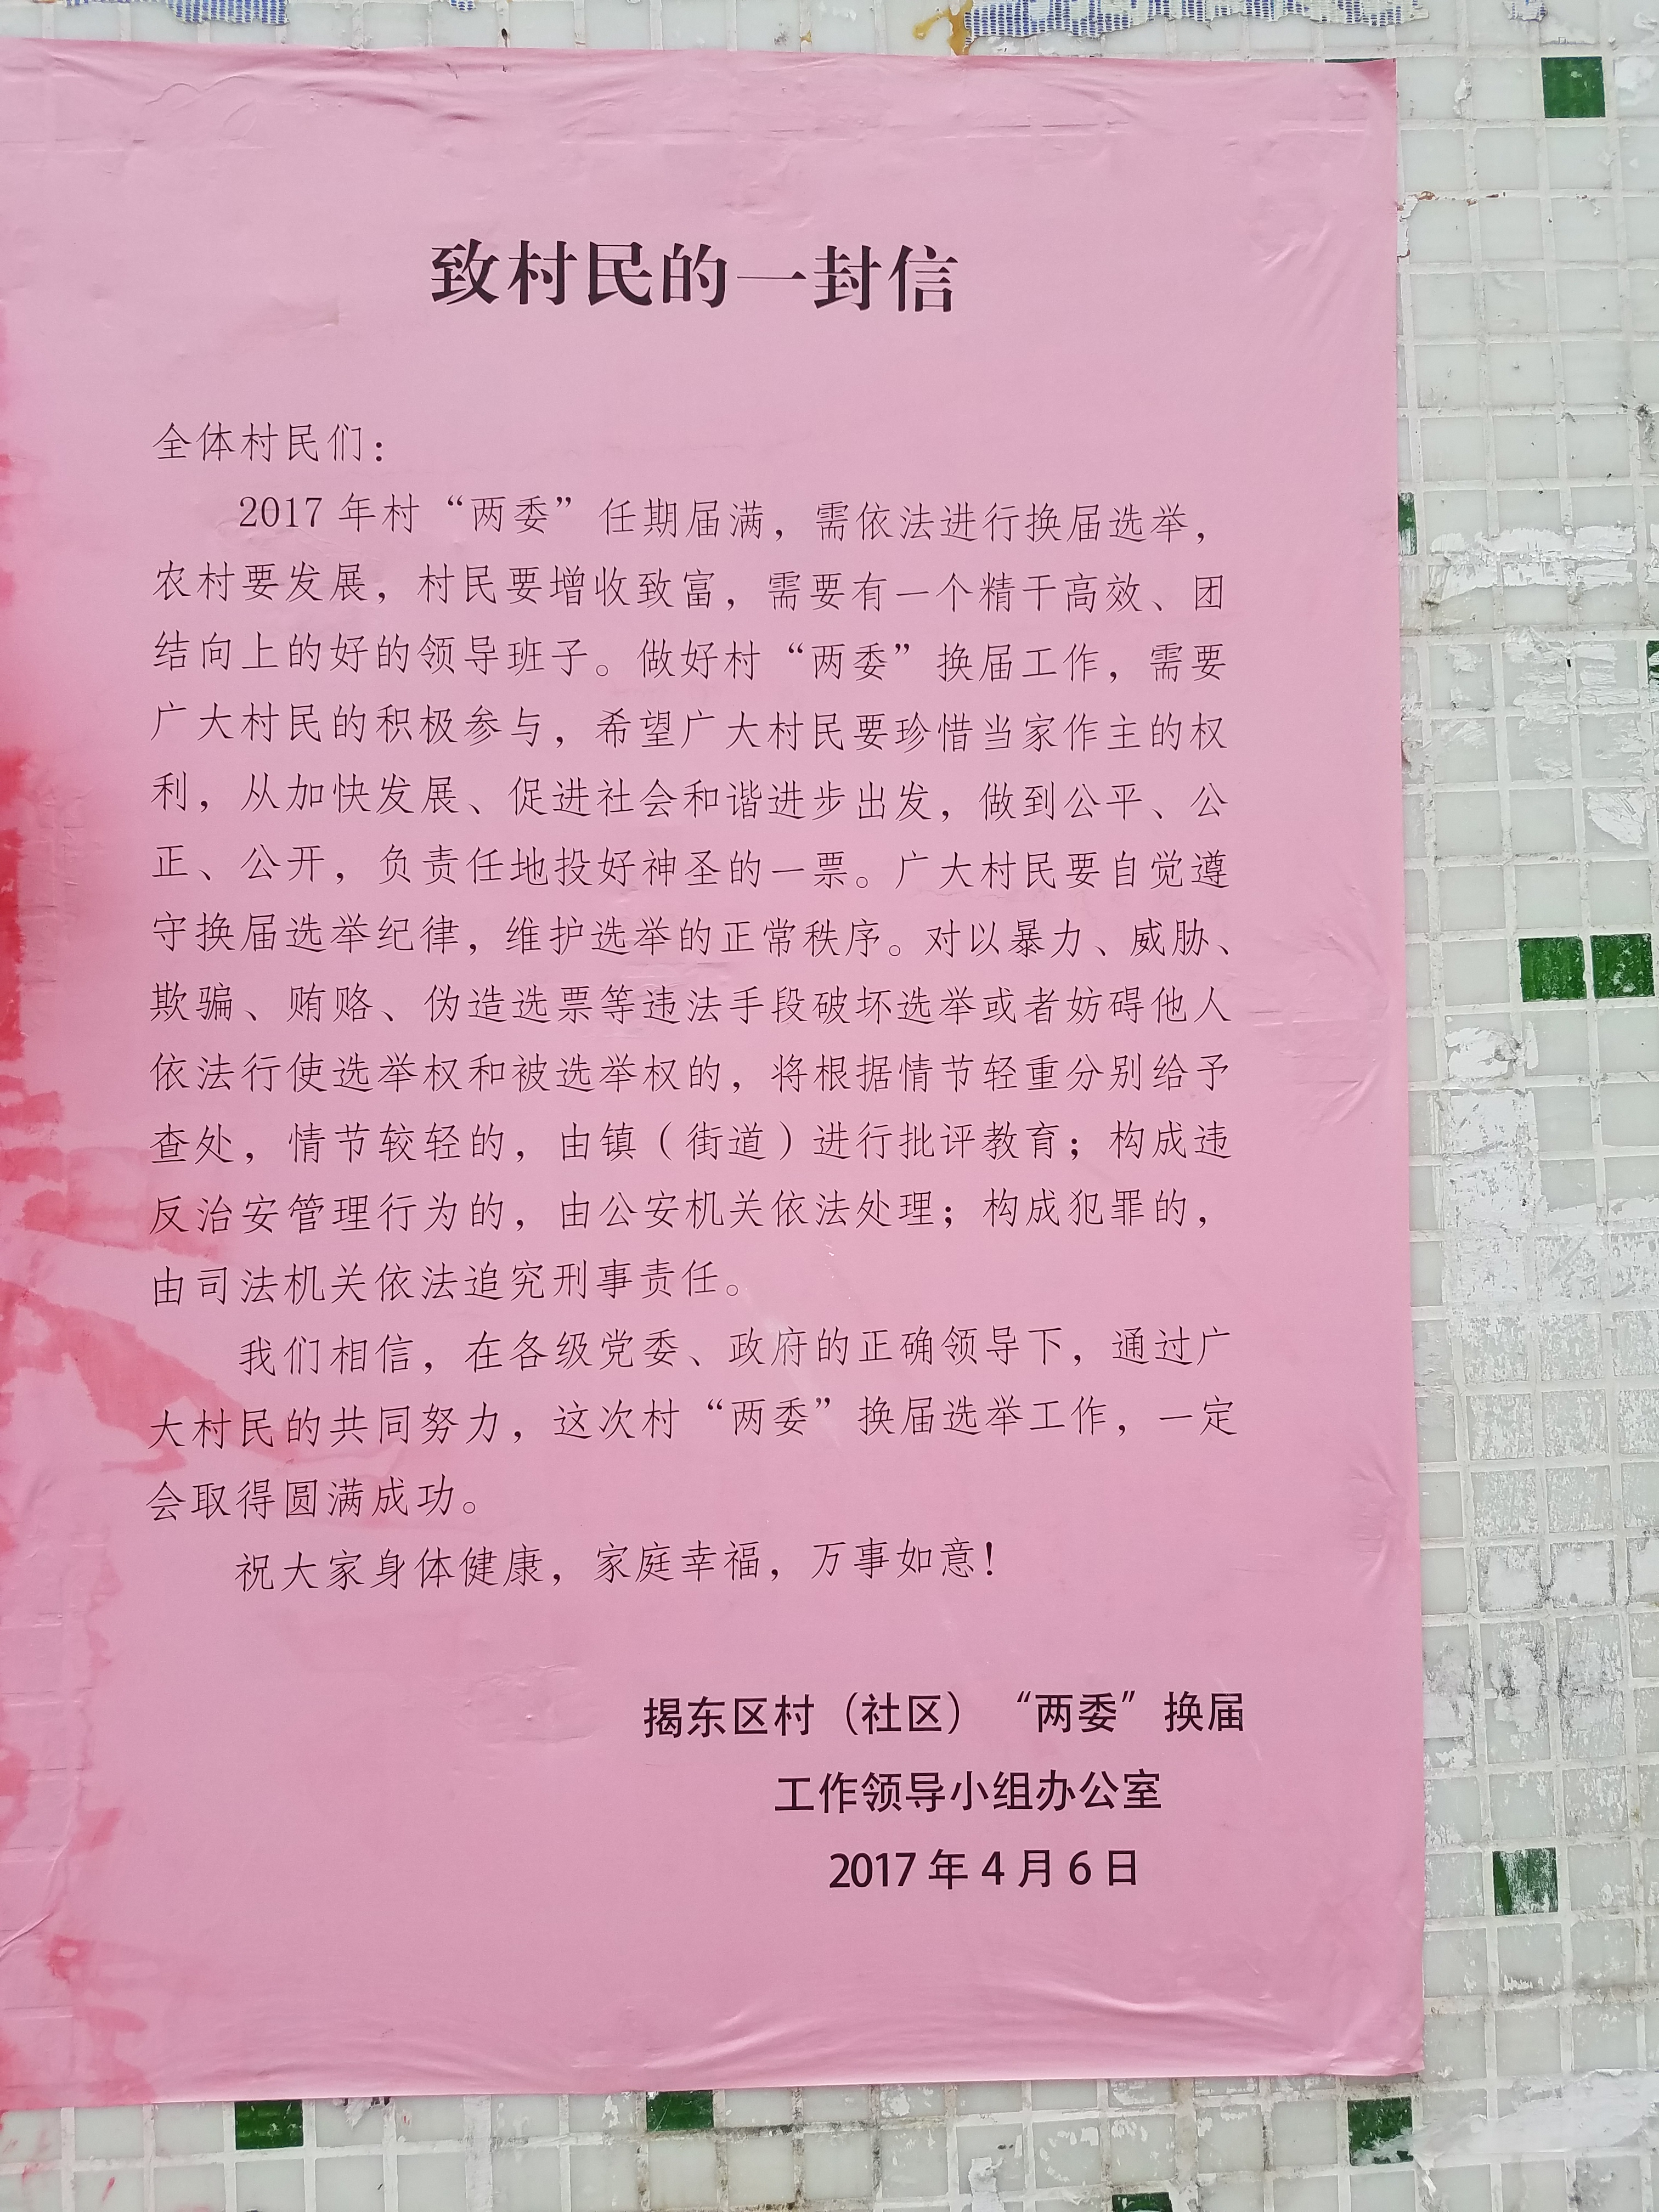 致村民的一封信
全体村民们：
2017年村“两委”任期届满，需依法进行换届选举，
农村要发展，村民要增收致富，需要有一个精干高效、团
结向上的好的领导班子。做好村“两委”换届工作，需要
广大村民的积极参与，希望广大村民要珍惜当家作主的权
利，从加快发展、促进社会和谐进步出发，做到公平、公
正、公开，负责任地投好神圣的一票。广大村民要自觉遵
守换届选举纪律，维护选举的正常秩序。对以暴力、威胁、
欺骗、贿赂、伪造选票等违法手段破坏选举或者妨碍他人
依法行使选举权和被选举权的，将根据情节轻重分别给予
查处，情节较轻的，由镇（街道）进行批评教育；构成违
反治安管理行为的，由公安机关依法处理；构成犯罪的，
由司法机关依法追究刑事责任。
我们相信，在各级党委、政府的正确领导下，通过广
大村民的共同努力，这次村“两委”换届选举工作，一定
会取得圆满成功。
祝大家身体健康，家庭幸福，万事如意！
揭东区村（社区）“两委”换届
工作领导小组办公室
2017年4月6日